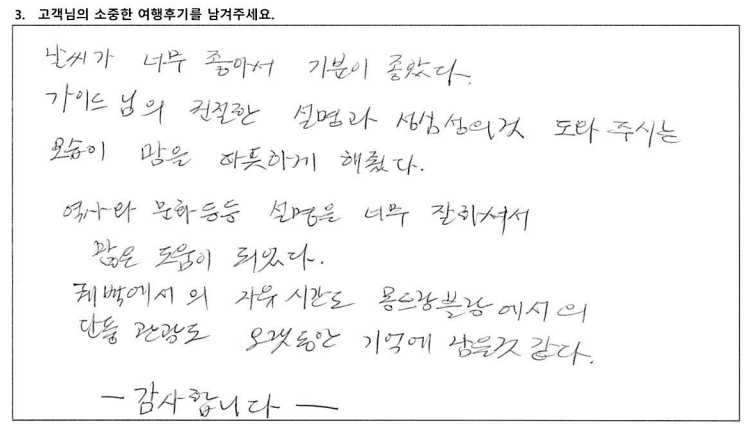 3. 고객님의 소중한 여행후기를 남겨주세요.
날씨가 너무 좋아서 기분이 좋았다.
가이드 님의 친절한 설명과 성심성의것 도와 주시는
모습이 맘을 따뜻하게 해줬다.
역사와 문화등등 설명을 너무 잘하셔서
많은 도움이 되었다.
퀘백에서의 자유시간도 몽트랑블랑에서의
단풍 관광도 오랫동안 기억에 남을것 같다.
- 감사합니다 -